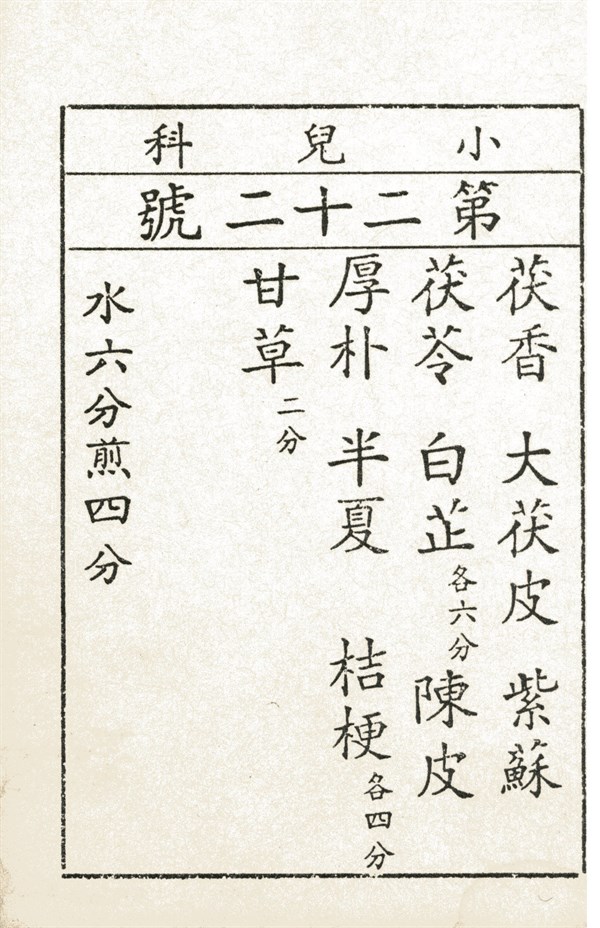 小兒科
第二十二號
茯香 大茯皮 紫蘇
茯苓 白芷各六分 陳皮
厚朴 半夏 桔梗各四分
甘草二分
水六分煎四分